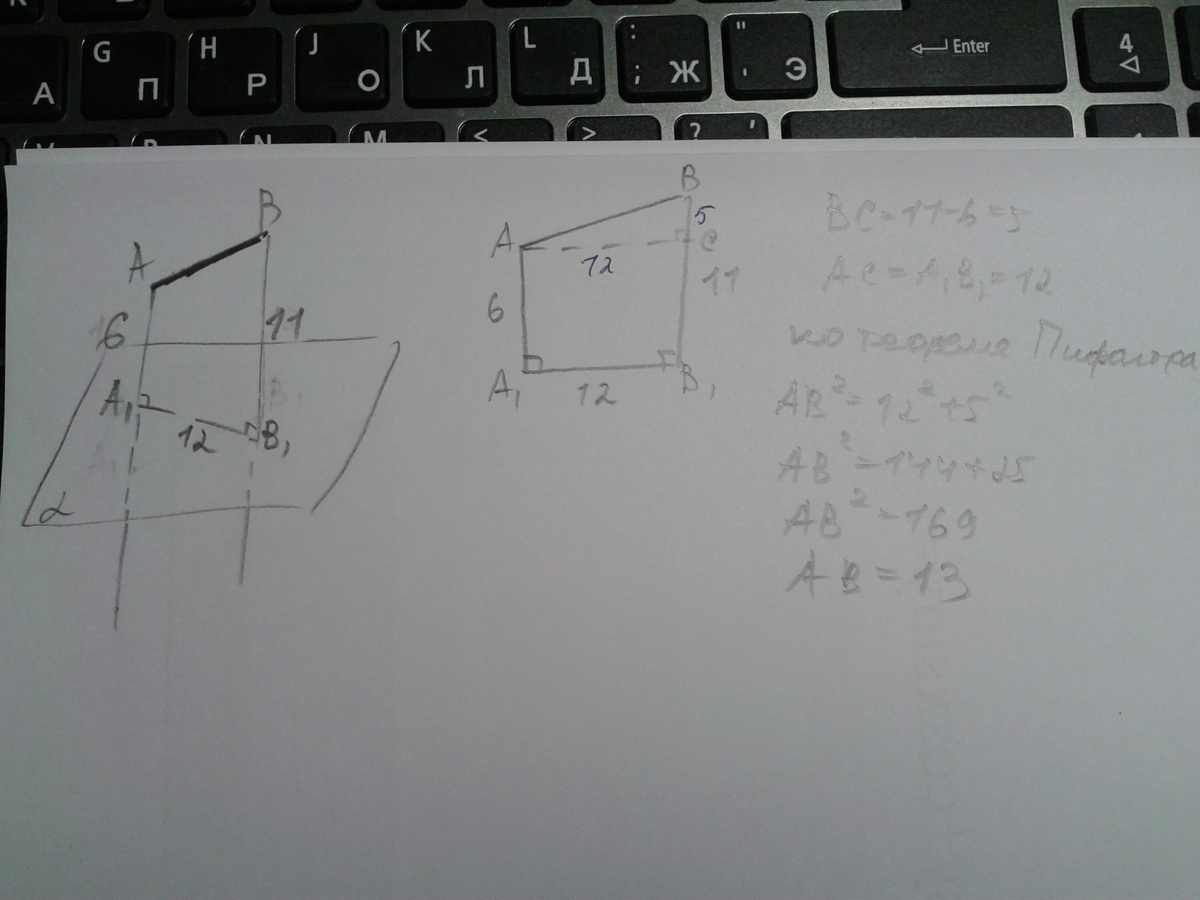 G H J K L : " Enter 4
А П Р О Л Д ; Ж ' Э
M < > ? ,
B
A
6 11
A₁
12 B₁
α
B
5
A C
12
6 11
A₁ 12 B₁
BC=11-6=5
AC=A₁B₁=12
по теореме Пифагора
AB²=12²+5²
AB²=144+25
AB²=169
AB=13